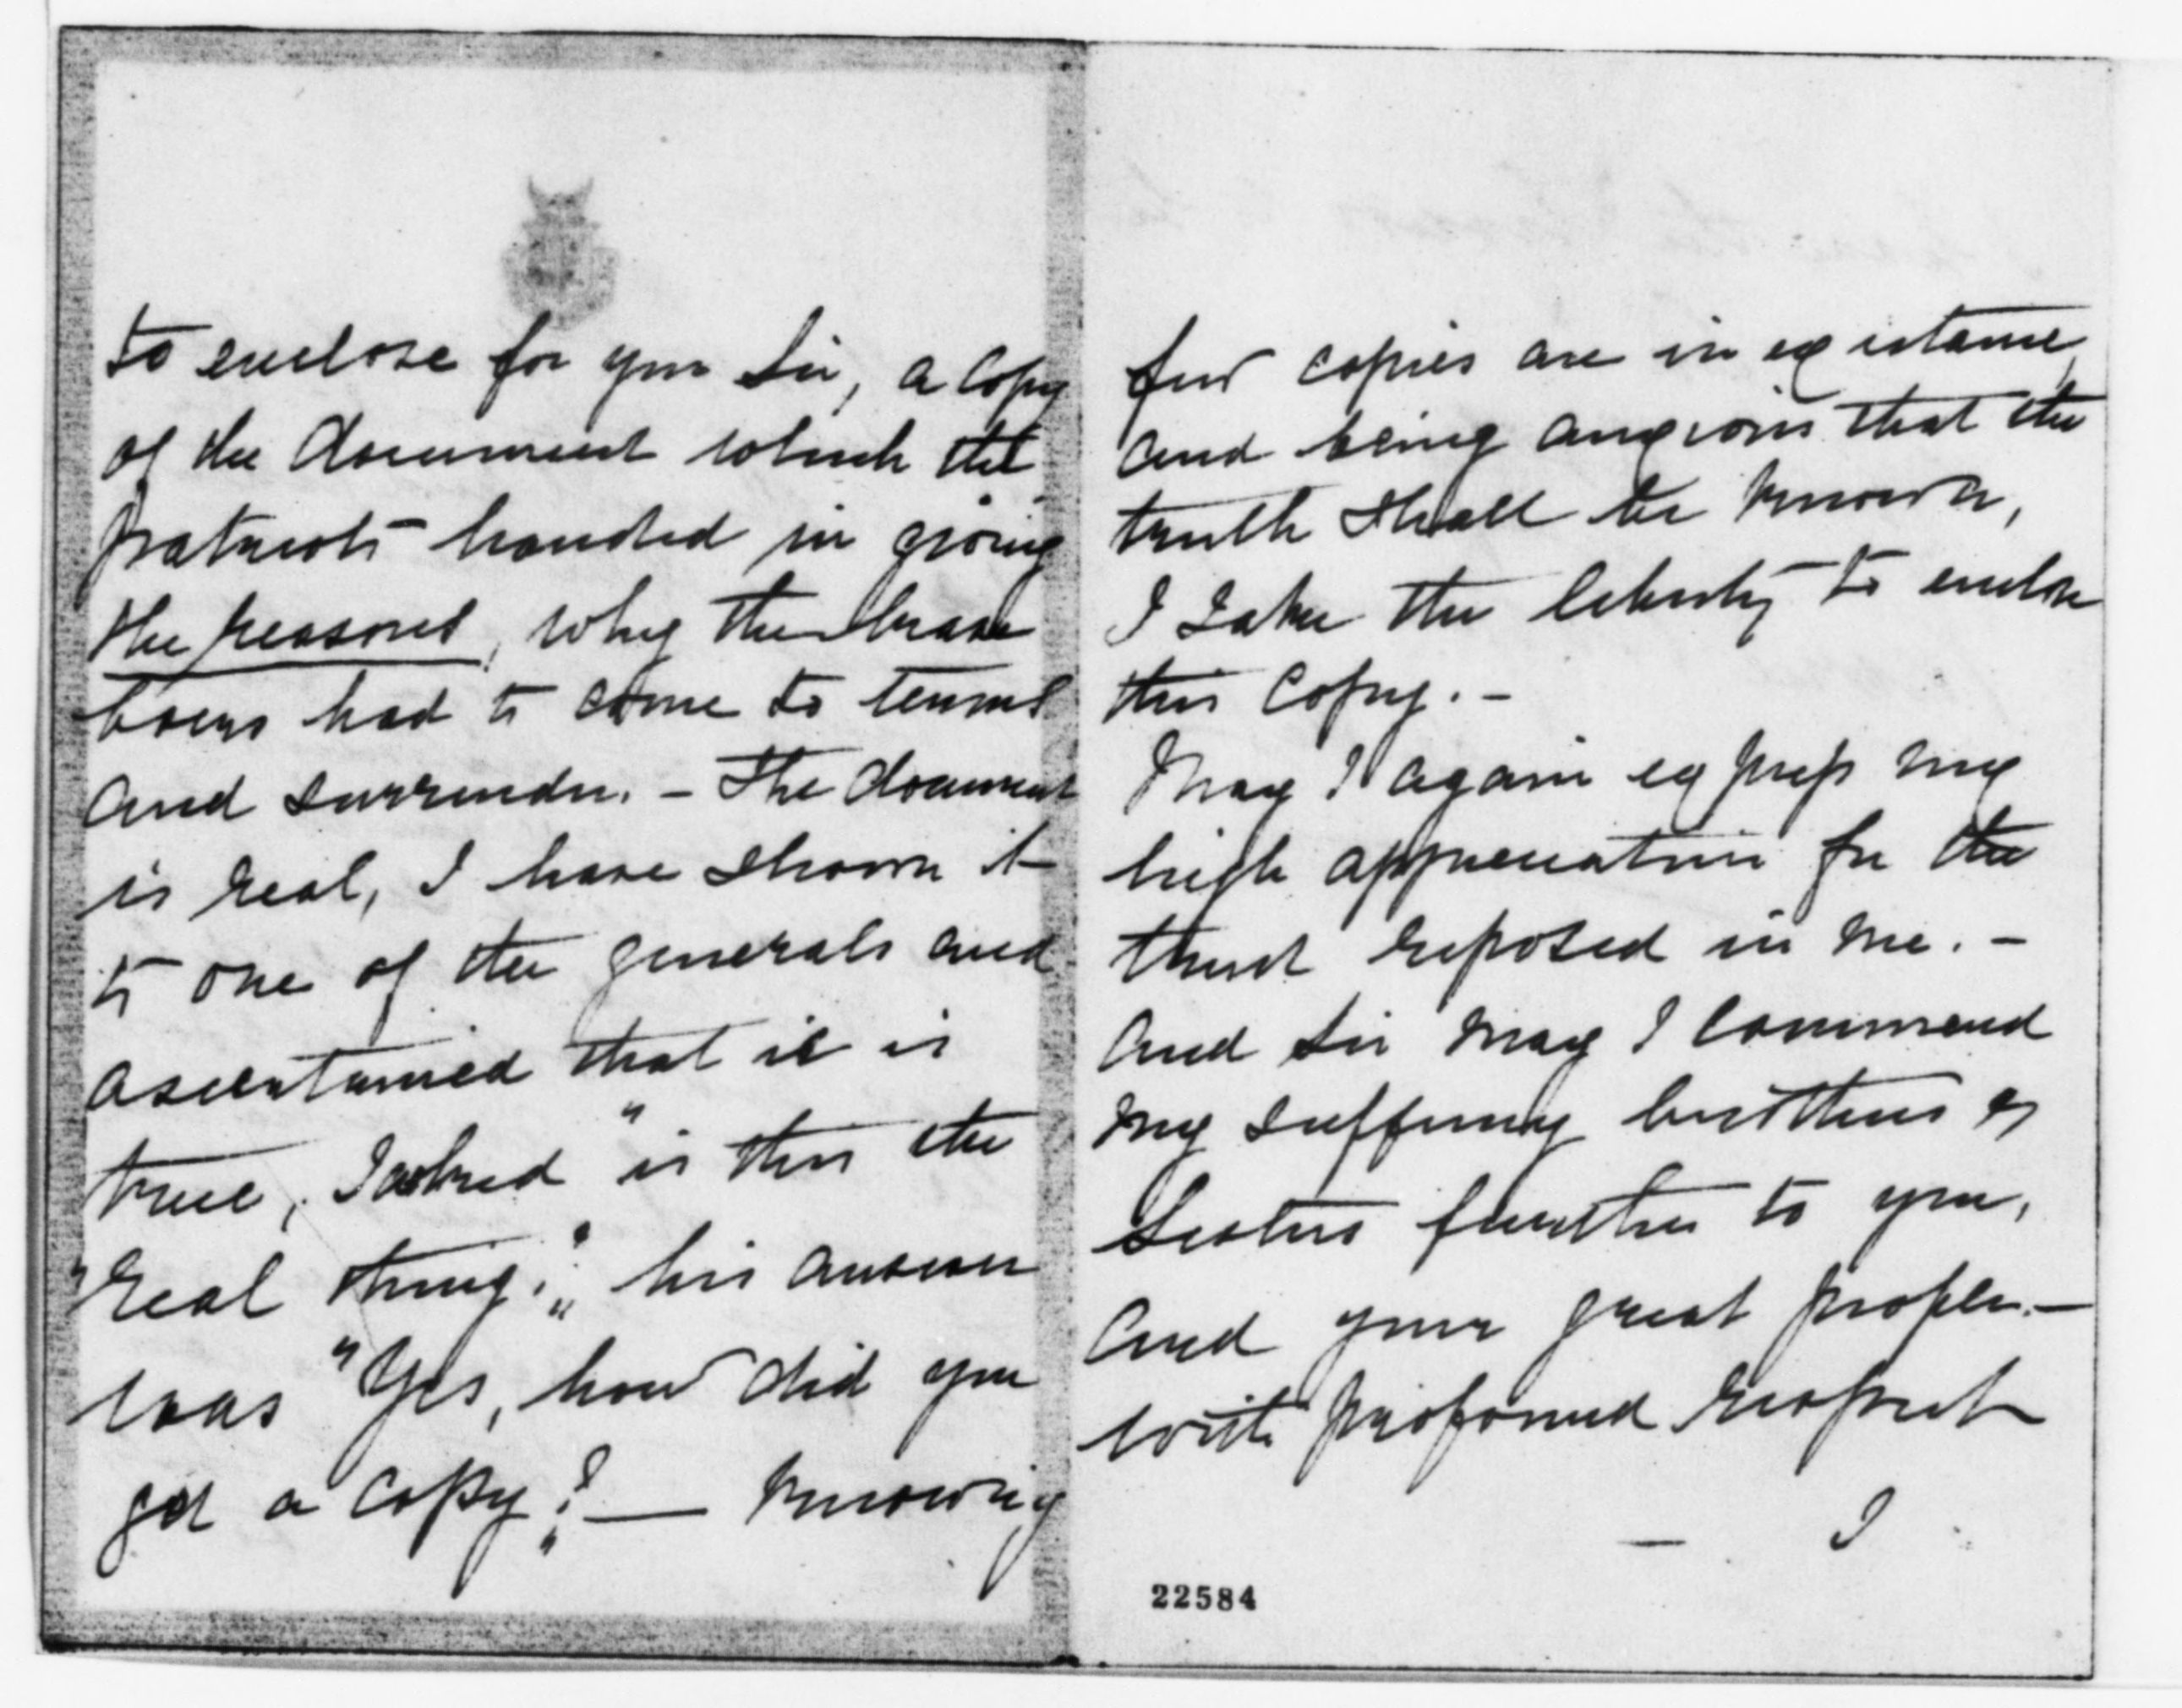 to enclose for you Sir, a copy
of the document which the
patriots handed in giving
the reasons, why the brave
boers had to come to terms
and surrender. – The document
is real, I have shown it
to one of the generals and
ascertained that it is
true, I asked "is this the
"real thing?" his answer
was "Yes, how did you
get a copy?" — Knowing
few copies are in existance,
and being anxious that the
truth shall be known,
I take the liberty to enclose
this copy. –
May I again express my
high appreciation for the
trust reposed in me. –
And Sir may I commend
my suffering brothers &
sisters further to you,
and your great people. –
with profound respect
– I
22584